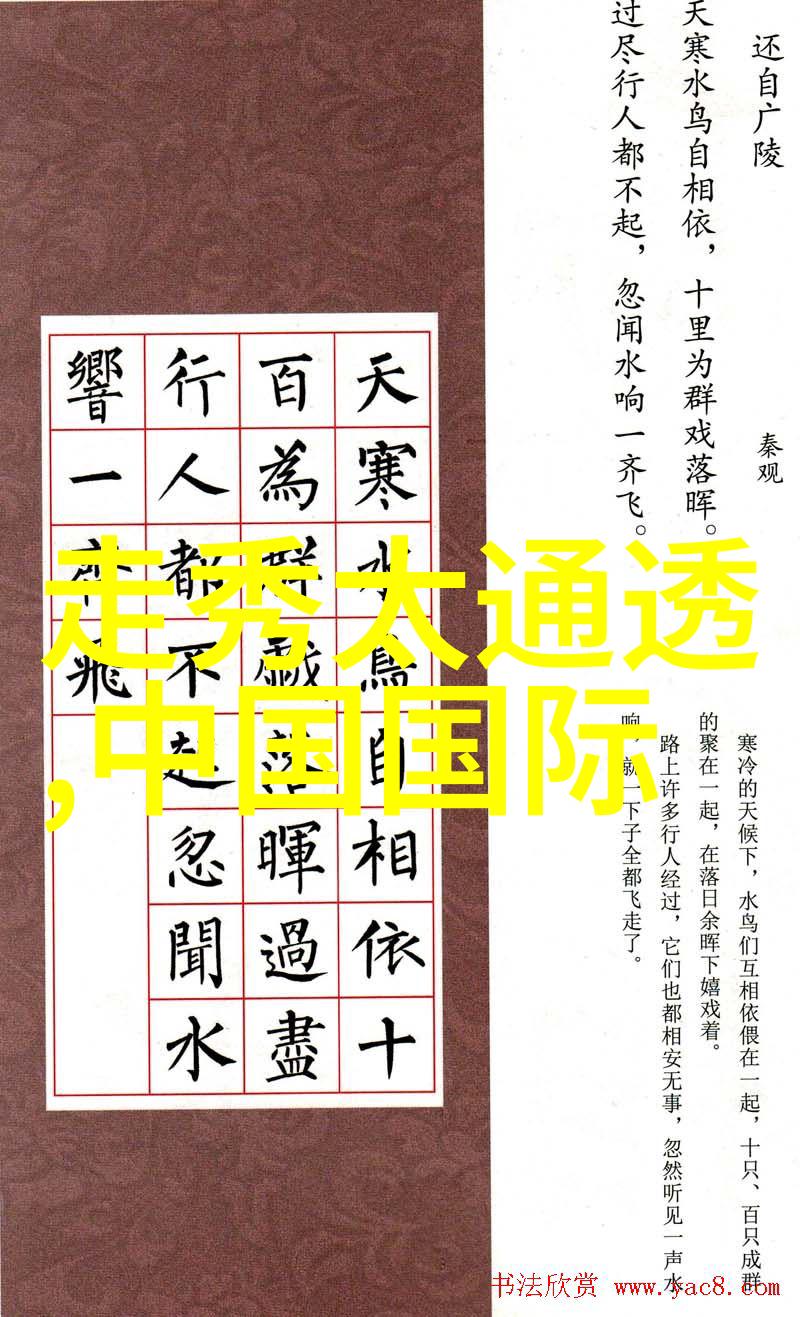 还自广陵
秦观
天寒水鸟自相依，十里为群戏落晖。
过尽行人都不起，忽闻水响一齐飞。
寒冷的天候下，水鸟们互相依偎在一起，十只、百只成群
的聚在一起，在落日余晖下嬉戏着。
路上许多行人经过，它们也都相安无事，忽然听见一声水
响，就一下子全都飞走了。
天寒水鳥自相依十
百為群戲落暉過盡
行人都不起忽聞水
響一齊飛
走秀太通透
,中国国际
书法欣赏 www.yac8.com